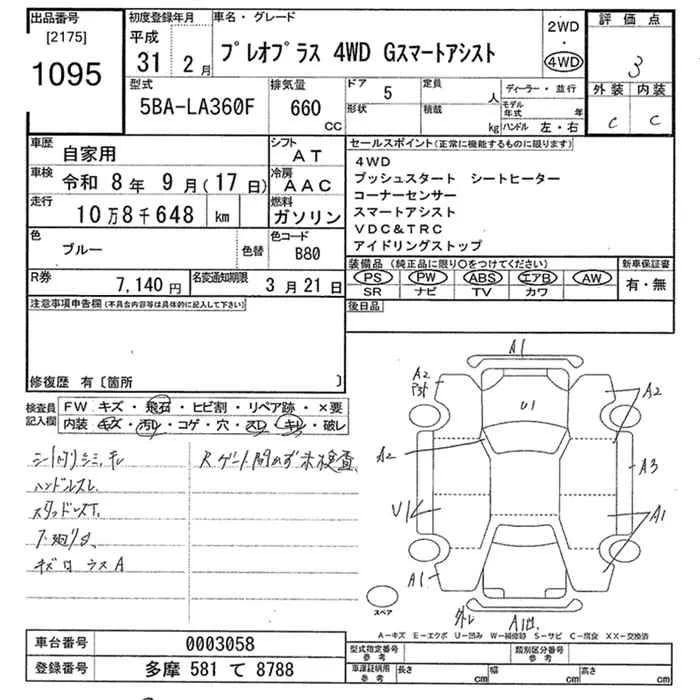 出品番号
[2175]
1095
初度登録年月
平成
31 2月
車名・グレード
プレオプラス 4WD Gスマートアシスト
2WD
・
4WD
評価点
3
外装 内装
C C
型式
5BA-LA360F
排気量
660
CC
ドア 5
形状
定員 人
積載 kg
ディーラー・並行
モデル年式 年
ハンドル 左・右
車歴
自家用
シフト
AT
車検
令和 8年 9月(17日)
冷房
AAC
走行
10万8千648 km
燃料
ガソリン
色
ブルー
色替
色コード
B80
R券
7,140円
名変通知期限
3月21日
セールスポイント(正常に機能するものに限ります)
4WD
プッシュスタート シートヒーター
コーナーセンサー
スマートアシスト
VDC&TRC
アイドリングストップ
装備品(純正品に限り○をつけてください)
PS PW ABS エアB AW
SR ナビ TV カワ
新車保証書
有・無
後日品
注意事項申告欄(不具合内容等は具体的に記入して下さい)
修復歴 有〔箇所 〕
検査員
記入欄
FW キズ・飛石・ヒビ割・リペア跡・×要
内装 キズ・汚レ・コゲ・穴・スレ・キレ・破レ
ハンドルスレ
Rゲート開かず未検査
A1
A2
U1
A2
A2
A3
U1
A1
A1
外レ
スペア
A-キズ E-エクボ U-凹み W-補修跡 S-サビ C-腐食 XX-交換済
車台番号
0003058
登録番号
多摩 581 て 8788
型式指定番号
参考
類別区分番号
参考
車庫証明用
参考
長さ cm
幅 cm
高さ cm